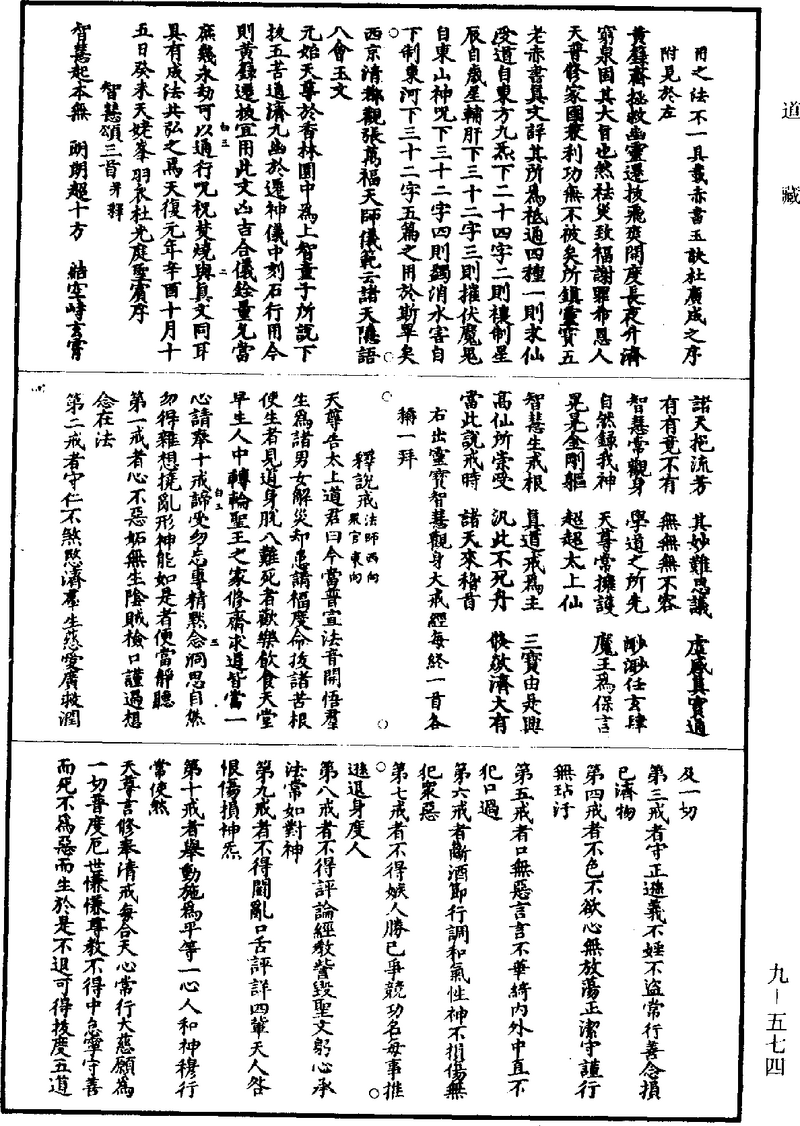 道藏
用之法不一具載赤書玉訣杜廣成之序
附見於左
黃籙齋拯救幽靈遷拔飛爽開度長夜升濟
窮泉固其大旨也然祛災致福謝罪希恩人
天普修家國兼利功無不被矣所鎮靈寶五
老赤書真文詳其所為祗通四種一則求仙
受道自東方九炁下二十四字二則檢制星
辰自歲星輔肝下三十二字三則摧伏魔鬼
自東山神咒下三十二字四則蠲消水害自
下制東河下三十二字五篇之用於斯畢矣
西京清都觀張萬福天師儀範云諸天隱語
八會玉文
元始天尊於香林園中為上智童子所說下
拔五苦通濟九幽於遷神儀中刻石行用今
則黃籙遷拔宜用此文凶吉合儀銓量允當
庶幾永劫可以通行咒祝焚燒與真文同耳
具有成法共弘之焉天復元年辛酉十月十
五日癸未天姥峯羽衣杜光庭聖賓序
智慧頌三首并釋
智慧起本無　朗朗超十方　結空峙玄霄
諸天挹流芳　其妙難思議　虛感真實通
有有竟不有　無無無不容
智慧常觀身　學道之所先　渺渺任玄肆
自然錄我神　天尊常擁護　魔王為保言
晃晃金剛軀　超超太上仙
智慧生戒根　真道戒為主　三寶由是興
高仙所崇受　汎此不死舟　倏欻濟大有
當此說戒時　諸天來稽首
右出靈寶智慧觀身大戒經每終一首各
稱一拜
釋說戒法師西向眾官東向
天尊告太上道君曰今當普宣法音開悟羣
生為諸男女解災却患請福度命拔諸苦根
使生者見道身脫八難死者歡樂飲食天堂
早生人中轉輪聖王之家修齋求道皆當一
心請奉十戒諦受勿忘專精默念洞思自然
勿得雜想擾亂形神能如是者便當靜聽
第一戒者心不惡妬無生陰賊檢口謹過想
念在法
第二戒者守仁不煞愍濟羣生慈愛廣救潤
及一切
第三戒者守正遜義不婬不盜常行善念損
己濟物
第四戒者不色不欲心無放蕩正潔守謹行
無玷汙
第五戒者口無惡言言不華綺內外中直不
犯口過
第六戒者斷酒節行調和氣性神不損傷無
犯眾惡
第七戒者不得嫉人勝己爭競功名每事推
遜退身度人
第八戒者不得評論經教訾毀聖文躬心承
法常如對神
第九戒者不得鬭亂口舌評詳四輩天人咎
恨傷損神炁
第十戒者舉動施為平等一心人和神穆行
常使然
天尊言修奉清戒每合天心常行大慈願為
一切普度厄世慊慊尊教不得中怠寧守善
而死不為惡而生於是不退可得拔度五道
九－五七四